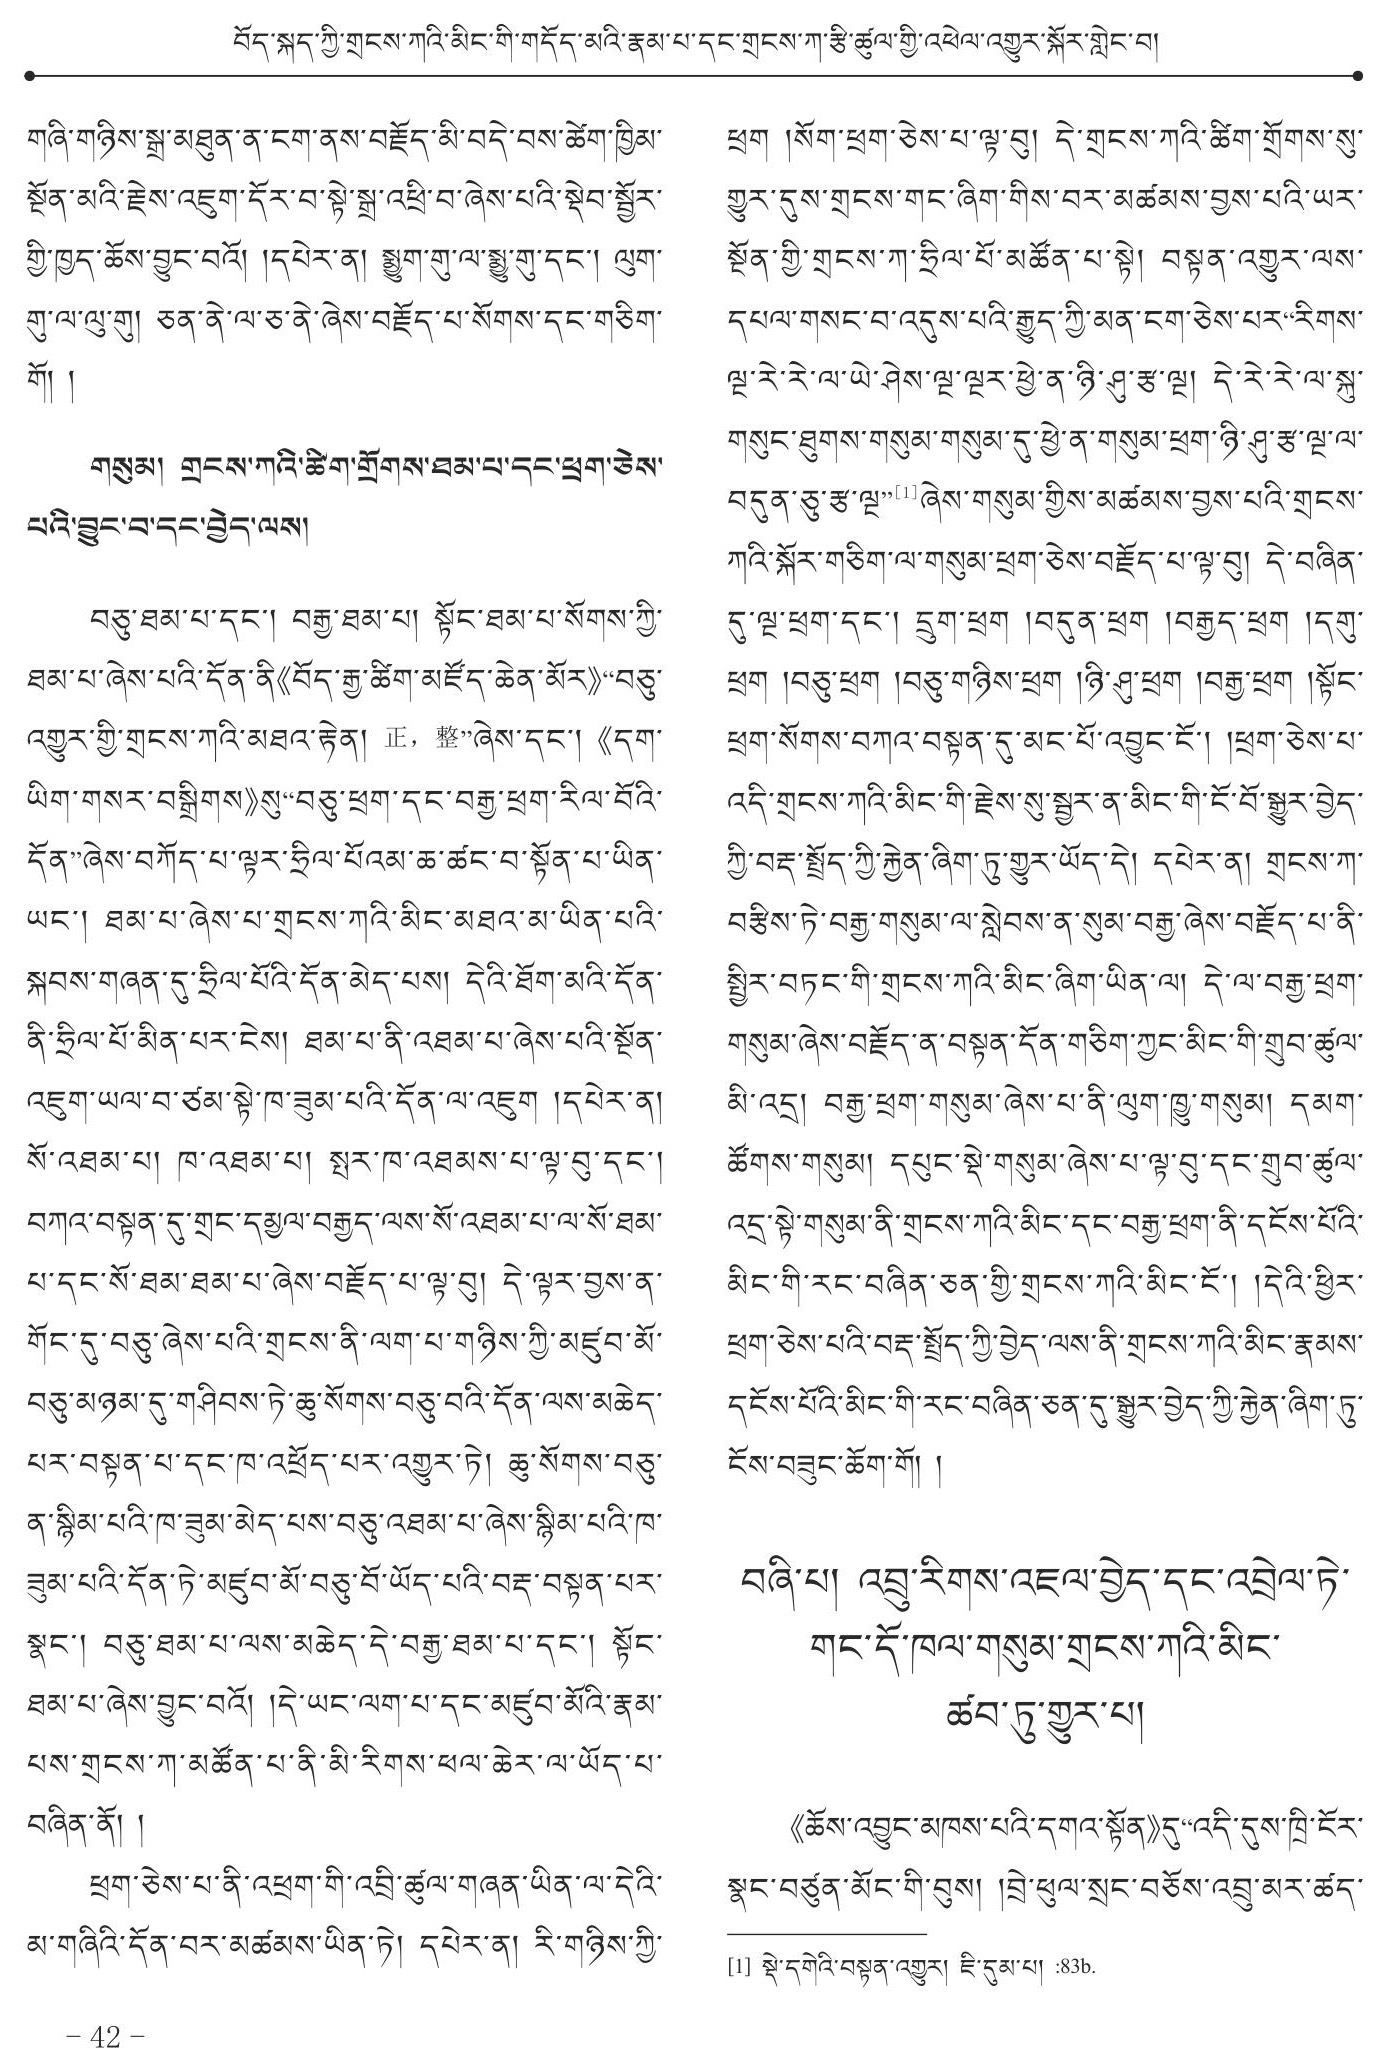 བོད་སྐད་ཀྱི་གྲངས་ཀའི་མིང་གི་གདོད་མའི་རྣམ་པ་དང་གྲངས་ཀ་རྩི་ཚུལ་གྱི་འཕེལ་འགྱུར་སྐོར་གླེང་བ།
གཞི་གཉིས་སྒྲ་མཐུན་ན་ངག་ནས་བརྗོད་མི་བདེ་བས་ཚེག་ཁྱིམ་
སྔོན་མའི་རྗེས་འཇུག་དོར་བ་སྟེ་སྒྲ་འཕྲི་བ་ཞེས་པའི་སྡེབ་སྦྱོར་
གྱི་ཁྱད་ཆོས་བྱུང་བའོ། །དཔེར་ན། སྨྱུག་གུ་ལ་སྨྱུ་གུ་དང་། ལུག་
གུ་ལ་ལུ་གུ། ཅན་ནེ་ལ་ཅ་ནེ་ཞེས་བརྗོད་པ་སོགས་དང་གཅིག་
གོ། །
གསུམ། གྲངས་ཀའི་ཚིག་གྲོགས་ཐམ་པ་དང་ཕྲག་ཅེས་
པའི་བྱུང་བ་དང་བྱེད་ལས།
བཅུ་ཐམ་པ་དང་། བརྒྱ་ཐམ་པ། སྟོང་ཐམ་པ་སོགས་ཀྱི་
ཐམ་པ་ཞེས་པའི་དོན་ནི《བོད་རྒྱ་ཚིག་མཛོད་ཆེན་མོར》“བཅུ་
འགྱུར་གྱི་གྲངས་ཀའི་མཐའ་རྟེན། 正，整”ཞེས་དང་། 《དག་
ཡིག་གསར་བསྒྲིགས》སུ“བཅུ་ཕྲག་དང་བརྒྱ་ཕྲག་རིལ་བོའི་
དོན”ཞེས་བཀོད་པ་ལྟར་ཧྲིལ་པོའམ་ཆ་ཚང་བ་སྟོན་པ་ཡིན་
ཡང་། ཐམ་པ་ཞེས་པ་གྲངས་ཀའི་མིང་མཐའ་མ་ཡིན་པའི་
སྐབས་གཞན་དུ་ཧྲིལ་པོའི་དོན་མེད་པས། དེའི་ཐོག་མའི་དོན་
ནི་ཧྲིལ་པོ་མིན་པར་ངེས། ཐམ་པ་ནི་འཐམ་པ་ཞེས་པའི་སྔོན་
འཇུག་ཡལ་བ་ཙམ་སྟེ་ཁ་ཟུམ་པའི་དོན་ལ་འཇུག །དཔེར་ན།
སོ་འཐམ་པ། ཁ་འཐམ་པ། སྤར་ཁ་འཐམས་པ་ལྟ་བུ་དང་།
བཀའ་བསྟན་དུ་གྲང་དམྱལ་བརྒྱད་ལས་སོ་འཐམ་པ་ལ་སོ་ཐམ་
པ་དང་སོ་ཐམ་ཐམ་པ་ཞེས་བརྗོད་པ་ལྟ་བུ། དེ་ལྟར་བྱས་ན་
གོང་དུ་བཅུ་ཞེས་པའི་གྲངས་ནི་ལག་པ་གཉིས་ཀྱི་མཛུབ་མོ་
བཅུ་མཉམ་དུ་གཤིབས་ཏེ་ཆུ་སོགས་བཅུ་བའི་དོན་ལས་མཆེད་
པར་བསྟན་པ་དང་ཁ་འཕྲོད་པར་འགྱུར་ཏེ། ཆུ་སོགས་བཅུ་
ན་སྙིམ་པའི་ཁ་ཟུམ་མེད་པས་བཅུ་འཐམ་པ་ཞེས་སྙིམ་པའི་ཁ་
ཟུམ་པའི་དོན་ཏེ་མཛུབ་མོ་བཅུ་བོ་ཡོད་པའི་བརྡ་བསྟན་པར་
སྣང་། བཅུ་ཐམ་པ་ལས་མཆེད་དེ་བརྒྱ་ཐམ་པ་དང་། སྟོང་
ཐམ་པ་ཞེས་བྱུང་བའོ། །དེ་ཡང་ལག་པ་དང་མཛུབ་མོའི་རྣམ་
པས་གྲངས་ཀ་མཚོན་པ་ནི་མི་རིགས་ཕལ་ཆེར་ལ་ཡོད་པ་
བཞིན་ནོ། །
ཕྲག་ཅེས་པ་ནི་འཕྲག་གི་འབྲི་ཚུལ་གཞན་ཡིན་ལ་དེའི་
མ་གཞིའི་དོན་བར་མཚམས་ཡིན་ཏེ། དཔེར་ན། རི་གཉིས་ཀྱི་
ཕྲག །སོག་ཕྲག་ཅེས་པ་ལྟ་བུ། དེ་གྲངས་ཀའི་ཚིག་གྲོགས་སུ་
གྱུར་དུས་གྲངས་གང་ཞིག་གིས་བར་མཚམས་བྱས་པའི་ཡར་
སྔོན་གྱི་གྲངས་ཀ་ཧྲིལ་པོ་མཚོན་པ་སྟེ། བསྟན་འགྱུར་ལས་
དཔལ་གསང་བ་འདུས་པའི་རྒྱུད་ཀྱི་མན་ངག་ཅེས་པར“རིགས་
ལྔ་རེ་རེ་ལ་ཡེ་ཤེས་ལྔ་ལྔར་ཕྱེ་ན་ཉི་ཤུ་རྩ་ལྔ། དེ་རེ་རེ་ལ་སྐུ་
གསུང་ཐུགས་གསུམ་གསུམ་དུ་ཕྱེ་ན་གསུམ་ཕྲག་ཉི་ཤུ་རྩ་ལྔ་ལ་
བདུན་ཅུ་རྩ་ལྔ”[1]ཞེས་གསུམ་གྱིས་མཚམས་བྱས་པའི་གྲངས་
ཀའི་སྐོར་གཅིག་ལ་གསུམ་ཕྲག་ཅེས་བརྗོད་པ་ལྟ་བུ། དེ་བཞིན་
དུ་ལྔ་ཕྲག་དང་། དྲུག་ཕྲག །བདུན་ཕྲག །བརྒྱད་ཕྲག །དགུ་
ཕྲག །བཅུ་ཕྲག །བཅུ་གཉིས་ཕྲག །ཉི་ཤུ་ཕྲག །བརྒྱ་ཕྲག །སྟོང་
ཕྲག་སོགས་བཀའ་བསྟན་དུ་མང་པོ་འབྱུང་ངོ་། །ཕྲག་ཅེས་པ་
འདི་གྲངས་ཀའི་མིང་གི་རྗེས་སུ་སྦྱར་ན་མིང་གི་ངོ་བོ་སྒྱུར་བྱེད་
ཀྱི་བརྡ་སྤྲོད་ཀྱི་རྐྱེན་ཞིག་ཏུ་གྱུར་ཡོད་དེ། དཔེར་ན། གྲངས་ཀ་
བརྩིས་ཏེ་བརྒྱ་གསུམ་ལ་སླེབས་ན་སུམ་བརྒྱ་ཞེས་བརྗོད་པ་ནི་
སྤྱིར་བཏང་གི་གྲངས་ཀའི་མིང་ཞིག་ཡིན་ལ། དེ་ལ་བརྒྱ་ཕྲག་
གསུམ་ཞེས་བརྗོད་ན་བསྟན་དོན་གཅིག་ཀྱང་མིང་གི་གྲུབ་ཚུལ་
མི་འདྲ། བརྒྱ་ཕྲག་གསུམ་ཞེས་པ་ནི་ལུག་ཁྱུ་གསུམ། དམག་
ཚོགས་གསུམ། དཔུང་སྡེ་གསུམ་ཞེས་པ་ལྟ་བུ་དང་གྲུབ་ཚུལ་
འདྲ་སྟེ་གསུམ་ནི་གྲངས་ཀའི་མིང་དང་བརྒྱ་ཕྲག་ནི་དངོས་པོའི་
མིང་གི་རང་བཞིན་ཅན་གྱི་གྲངས་ཀའི་མིང་ངོ་། །དེའི་ཕྱིར་
ཕྲག་ཅེས་པའི་བརྡ་སྤྲོད་ཀྱི་བྱེད་ལས་ནི་གྲངས་ཀའི་མིང་རྣམས་
དངོས་པོའི་མིང་གི་རང་བཞིན་ཅན་དུ་སྒྱུར་བྱེད་ཀྱི་རྐྱེན་ཞིག་ཏུ་
ངོས་བཟུང་ཆོག་གོ། །
བཞི་པ། འབྲུ་རིགས་འཇལ་བྱེད་དང་འབྲེལ་ཏེ་
གང་དོ་ཁལ་གསུམ་གྲངས་ཀའི་མིང་
ཚབ་ཏུ་གྱུར་པ།
《ཆོས་འབྱུང་མཁས་པའི་དགའ་སྟོན》དུ“འདི་དུས་ཁྲི་ངོར་
སྣང་བཙུན་མོང་གི་བུས། །བྲེ་ཕུལ་སྲང་བཅོས་འབྲུ་མར་ཚད་
[1] སྡེ་དགེའི་བསྟན་འགྱུར། ཇི་དུམ་པ། :83b.
– 42 –